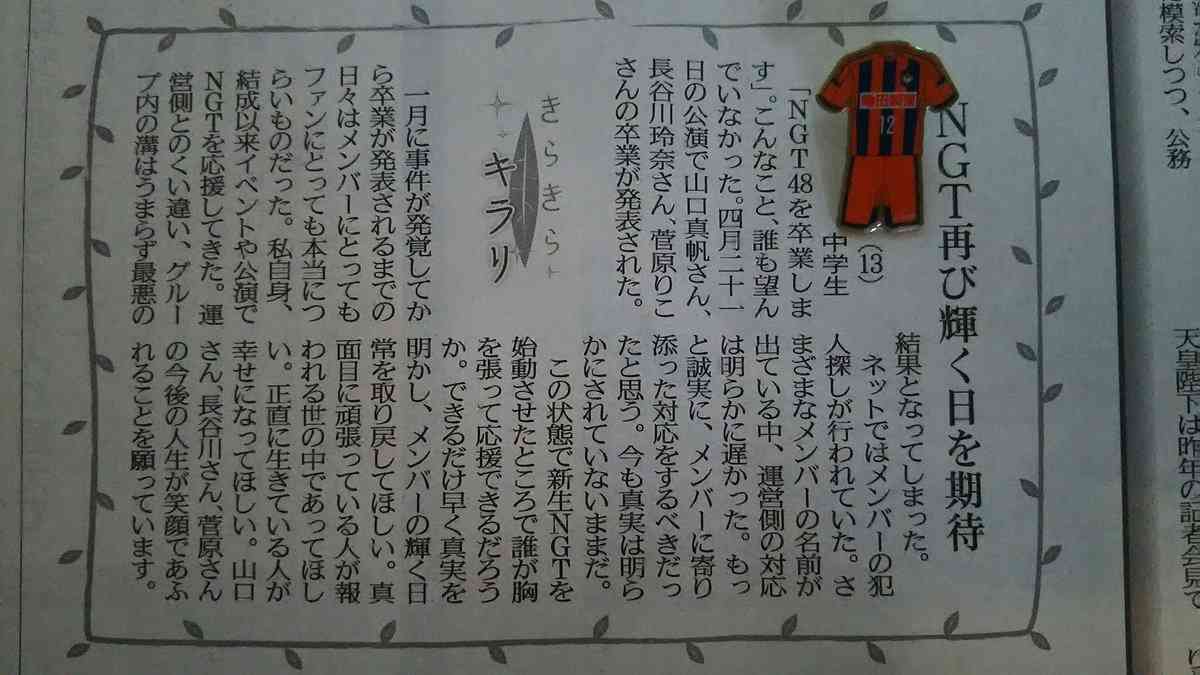 模索しつつ、公務
天皇陛下は昨年の記者会見で
NGT再び輝く日を期待
12
中学生
（13）
「NGT48を卒業しま
す」。こんなこと、誰も望ん
でいなかった。四月二十一
日の公演で山口真帆さん、
長谷川玲奈さん、菅原りこ
さんの卒業が発表された。
きらきら
キラリ
一月に事件が発覚してか
ら卒業が発表されるまでの
日々はメンバーにとっても
ファンにとっても本当につ
らいものだった。私自身、
結成以来イベントや公演で
NGTを応援してきた。運
営側とのくい違い、グルー
プ内の溝はうまらず最悪の
結果となってしまった。
ネットではメンバーの犯
人探しが行われていた。さ
まざまなメンバーの名前が
出ている中、運営側の対応
は明らかに遅かった。もっ
と誠実に、メンバーに寄り
添った対応をするべきだっ
たと思う。今も真実は明ら
かにされていないままだ。
この状態で新生NGTを
始動させたところで誰が胸
を張って応援できるだろう
か。できるだけ早く真実を
明かし、メンバーの輝く日
常を取り戻してほしい。真
面目に頑張っている人が報
われる世の中であってほし
い。正直に生きている人が
幸せになってほしい。山口
さん、長谷川さん、菅原さん
の今後の人生が笑顔であふ
れることを願っています。